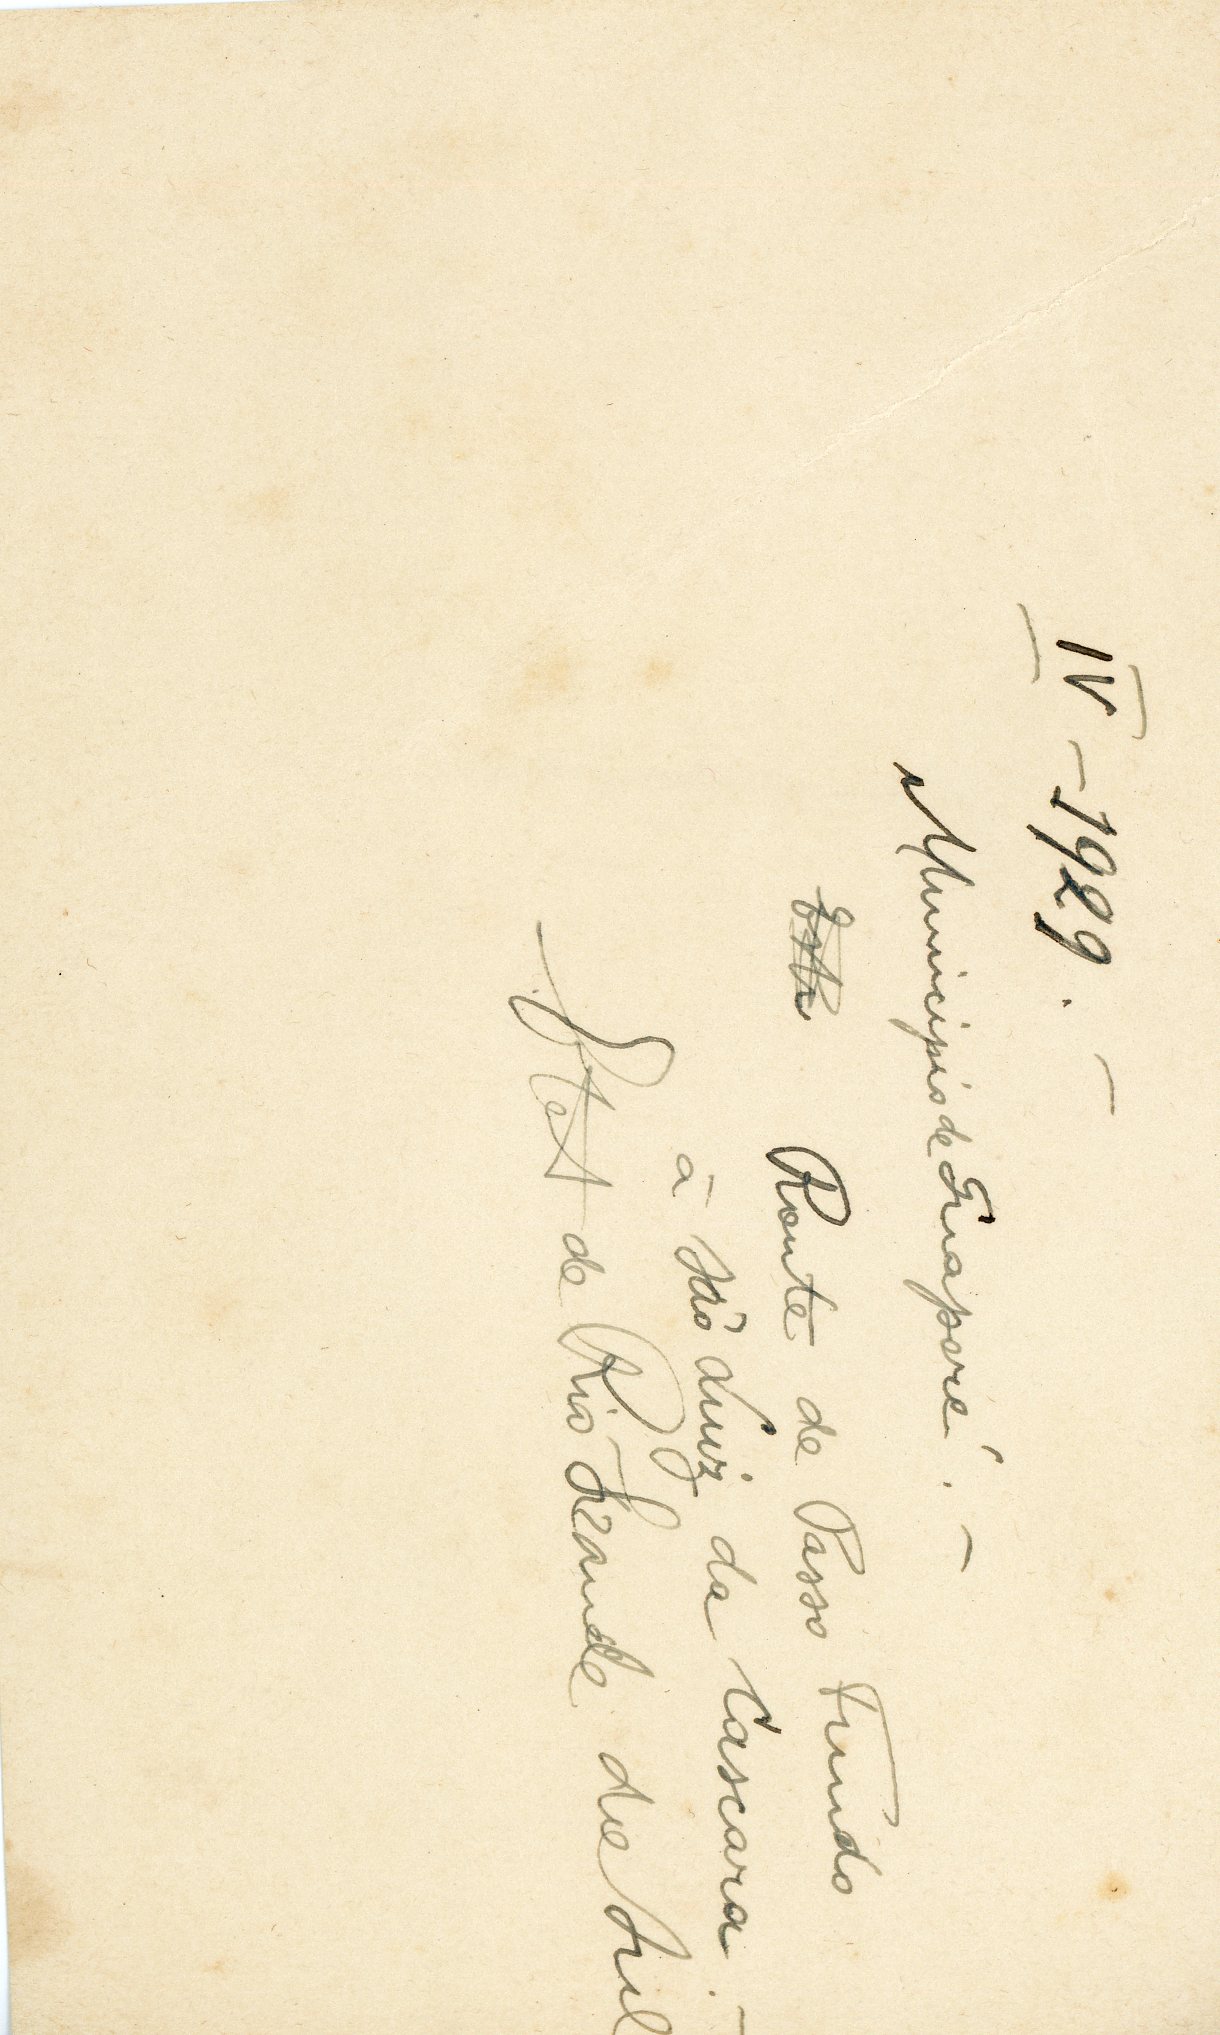 IV - 1929. -
Municipio de Guaporé. -
Route de Passo Fundo
à São Luiz da Cascara. -
Etat de Rio Grande du Sul